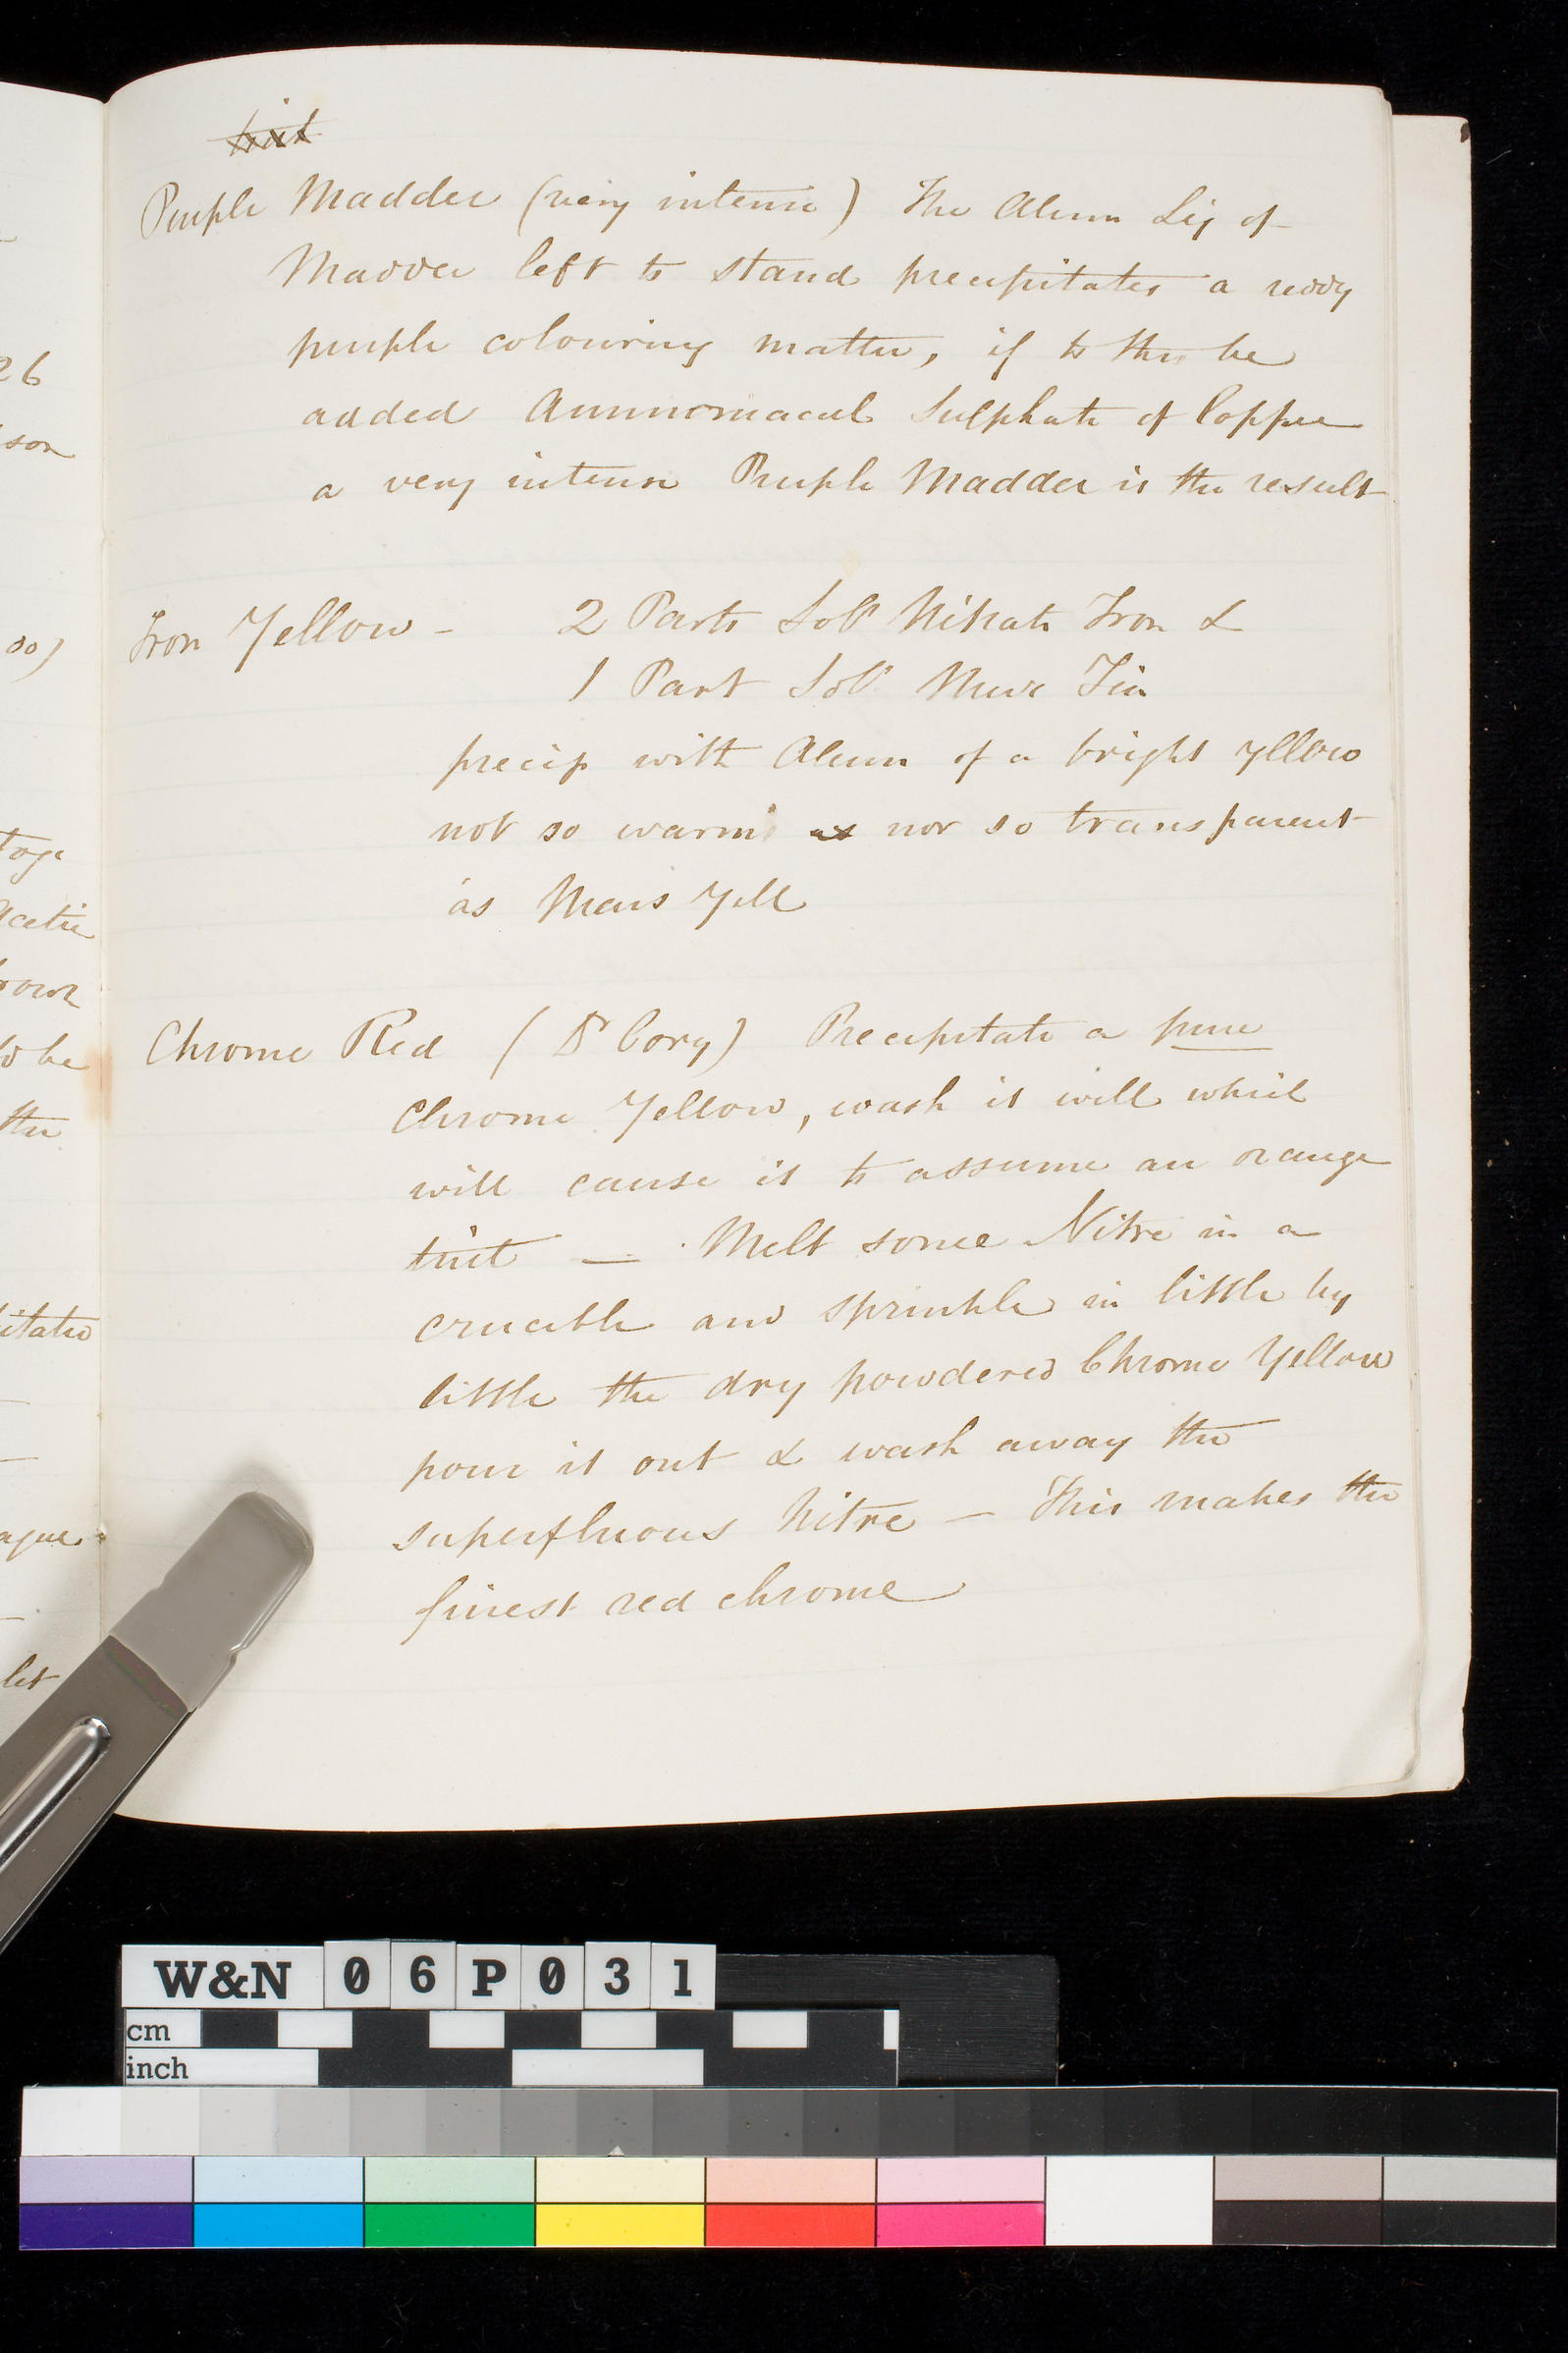 tint
Purple Madder (very intense) The Alum Liq of
Madder left to stand precipitates a reddy
purple colouring matter, if to this be
added Ammoniacal Sulphate of Copper
a very intense Purple Madder is the result
Iron Yellow - 2 Parts Solⁿ Nitrate Iron &
1 Part Solⁿ Mur Tin
precip with Alum of a bright yllow
not so warm as nor so transparent
as Mars Yell
Chrome Red (Dʳ Cory) Precipitate a pure
Chrome Yellow, wash it well which
will cause it to assume an orange
tint — Melt some Nitre in a
crucible and sprinkle in little by
little the dry powdered Chrome Yellow
pour it out & wash away the
superfluous Nitre — This makes the
finest red chrome
26
son
so)
toge
Acetic
to be
the
itated
let
W&N 06P031
cm
inch